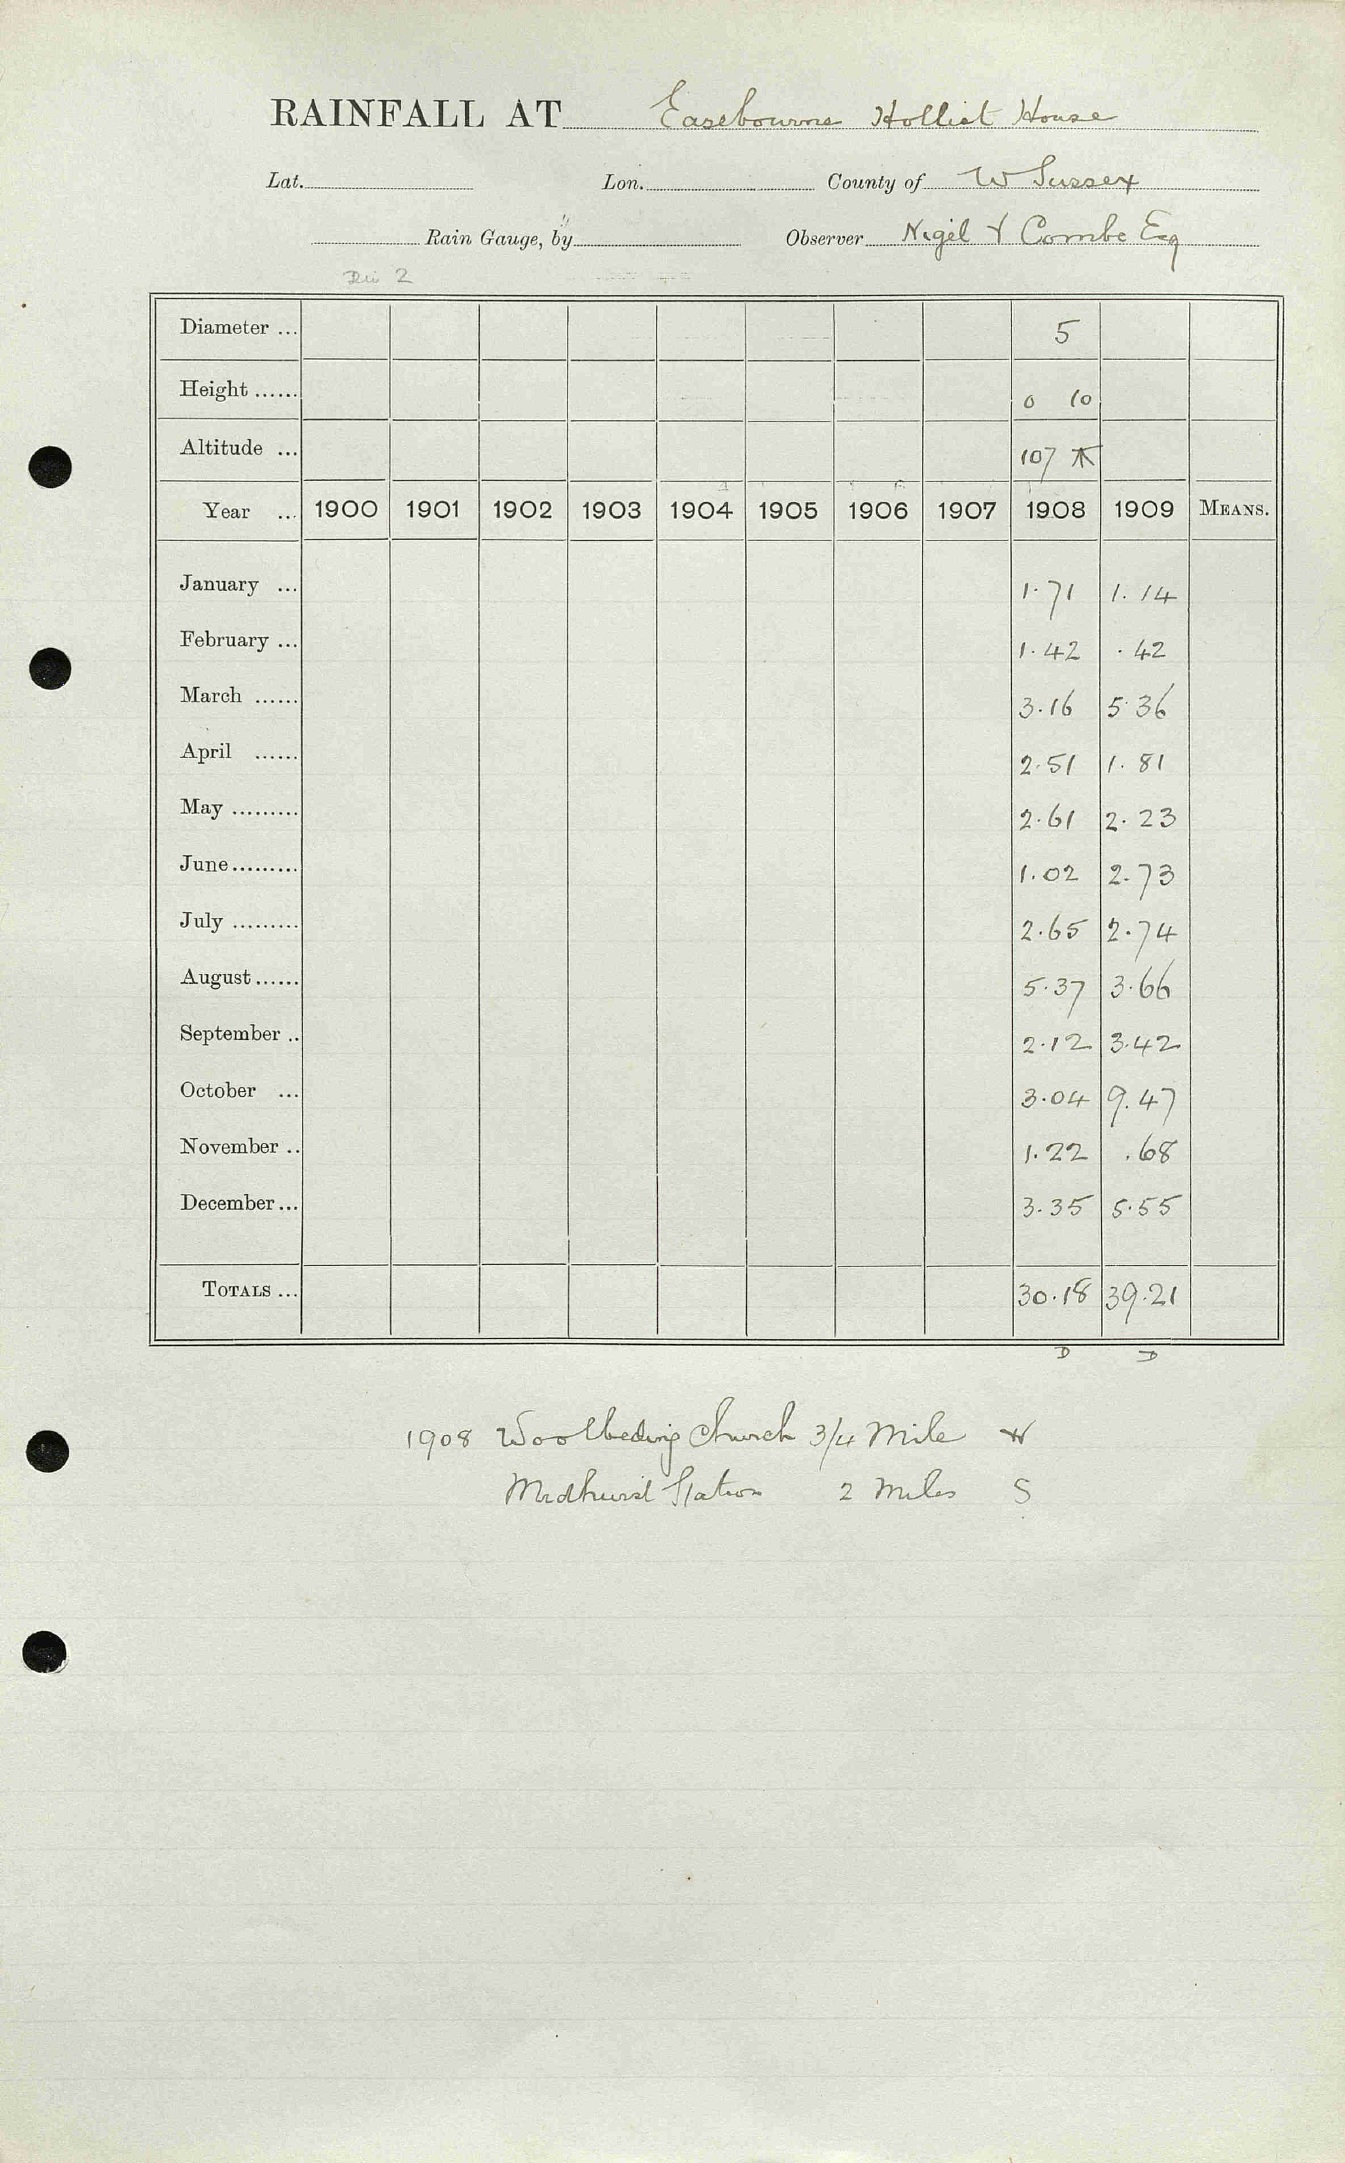 RAINFALL AT Easebourne Hollist House
Lat. Lon. County of W Sussex
Rain Gauge, by Observer Nigel Combe Esq
Div 2
Diameter ... 5
Height ...... 0 10
Altitude ... 107
Year ... 1900 1901 1902 1903 1904 1905 1906 1907 1908 1909 MEANS.
January ... 1.71 1.14
February ... 1.42 .42
March ...... 3.16 5.36
April ...... 2.51 1.81
May ......... 2.61 2.23
June ......... 1.02 2.73
July ......... 2.65 2.74
August ...... 5.37 3.66
September .. 2.12 3.42
October ... 3.04 9.47
November .. 1.22 .68
December ... 3.35 5.55
TOTALS ... 30.18 39.21
D D
1908 Woolbeding Church 3/4 Mile W
Midhurst Station 2 Miles S